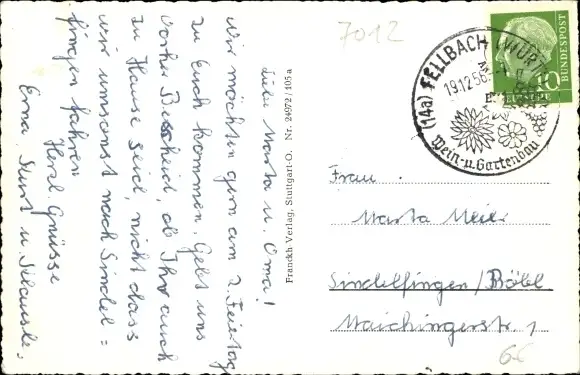 Liebe Marta u. Oma!
Wir möchten gern am 2. Feiertag
zu Euch kommen. Gebt uns
vorher Bescheid, ob Ihr auch
zu Hause seid, nicht dass
wir umsonst nach Sindel=
fingen fahren.
Herzl. Grüsse
Erna, Kurt u. Klausle.
Franckh Verlag, Stuttgart-O. Nr. 24972/105a
7012
(14a) FELLBACH (WÜRTT
19.12.56
Wein- u. Gartenbau
DEUTSCHE
BUNDESPOST
10
Frau
Marta Meier
Sindelfingen/Böbl
Maichingerstr. 1